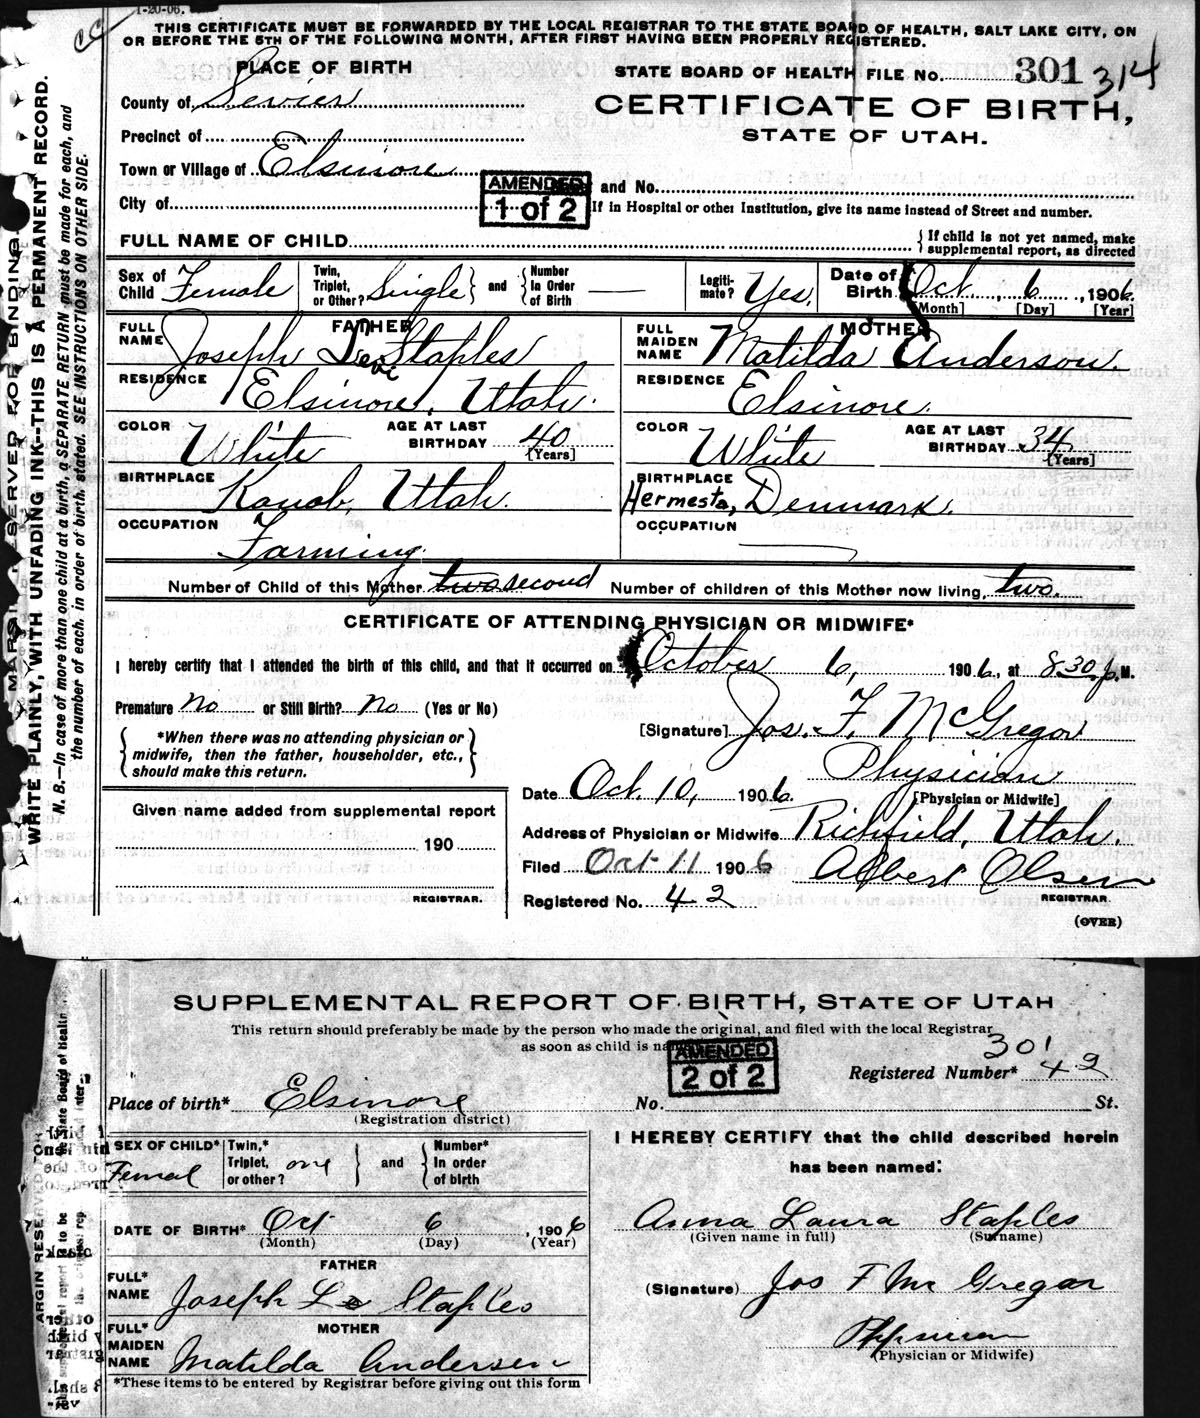 1-20-06.
THIS CERTIFICATE MUST BE FORWARDED BY THE LOCAL REGISTRAR TO THE STATE BOARD OF HEALTH, SALT LAKE CITY, ON
OR BEFORE THE 5TH OF THE FOLLOWING MONTH, AFTER FIRST HAVING BEEN PROPERLY REGISTERED.
PLACE OF BIRTH
STATE BOARD OF HEALTH FILE No. 301 314
County of Sevier
CERTIFICATE OF BIRTH,
Precinct of
STATE OF UTAH.
Town or Village of Elsinore
AMENDED
1 of 2
and No.
City of
If in Hospital or other Institution, give its name instead of Street and number.
FULL NAME OF CHILD
If child is not yet named, make
supplemental report, as directed
Sex of Child Female
Twin, Triplet, or Other? Single and Number In Order of Birth —
Legitimate? Yes
Date of Birth Oct. 6, 1906.
[Month] [Day] [Year]
FATHER
FULL NAME Joseph Levi Staples
MOTHER
FULL MAIDEN NAME Matilda Anderson.
RESIDENCE Elsinore, Utah.
RESIDENCE Elsinore.
COLOR White AGE AT LAST BIRTHDAY 40 [Years]
COLOR White AGE AT LAST BIRTHDAY 34 [Years]
BIRTHPLACE Kanab, Utah.
BIRTHPLACE Hermesta, Denmark.
OCCUPATION Farming.
OCCUPATION —
Number of Child of this Mother two second Number of children of this Mother now living, two.
CERTIFICATE OF ATTENDING PHYSICIAN OR MIDWIFE*
I hereby certify that I attended the birth of this child, and that it occurred on October 6, 1906, at 8 30 p.M.
Premature no or Still Birth? No (Yes or No)
[Signature] Jos. F. McGregor
*When there was no attending physician or
midwife, then the father, householder, etc.,
should make this return.
Physician
[Physician or Midwife]
Date Oct. 10, 1906.
Given name added from supplemental report
190
REGISTRAR.
Address of Physician or Midwife Richfield, Utah.
Filed Oct 11 1906 Albert Olsen
Registered No. 42
REGISTRAR.
(OVER)
MARGIN RESERVED FOR BINDING
WRITE PLAINLY, WITH UNFADING INK--THIS IS A PERMANENT RECORD.
N. B.—In case of more than one child at a birth, a SEPARATE RETURN must be made for each, and
the number of each, in order of birth, stated. SEE INSTRUCTIONS ON OTHER SIDE.
SUPPLEMENTAL REPORT OF BIRTH, STATE OF UTAH
This return should preferably be made by the person who made the original, and filed with the local Registrar
as soon as child is named
AMENDED
2 of 2
301
Registered Number* 42
Place of birth* Elsinore
(Registration district)
No. St.
SEX OF CHILD* Femal
Twin,* Triplet, or other? one and Number* In order of birth
I HEREBY CERTIFY that the child described herein
has been named:
DATE OF BIRTH* Oct 6, 1906
(Month) (Day) (Year)
Anna Laura Staples
(Given name in full) (Surname)
FATHER
FULL* NAME Joseph Le Staples
(Signature) Jos F Mc Gregor
MOTHER
FULL* MAIDEN NAME Matilda Andersen
Physician
(Physician or Midwife)
*These items to be entered by Registrar before giving out this form